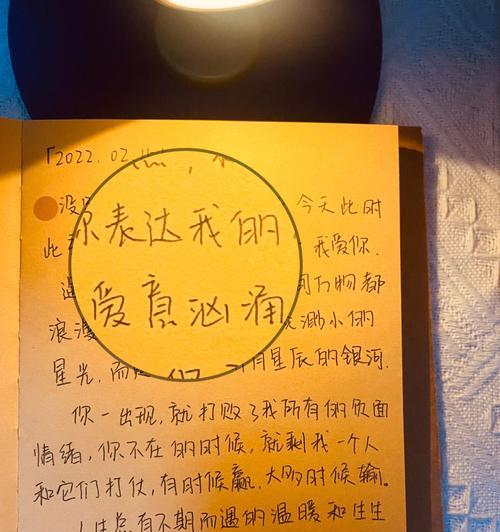 「2022.02
没 今天此时
表达我的
此 我爱你.
万物都
爱意汹涌
浪漫 渺小的
星光,而 们 有星辰的银河.
你一出现,就打败了我所有的负面
情绪,你不在的时候,就剩我一个人
和它们打仗,有时候赢,大多时候输。
人生总有不期而遇的温暖和生生